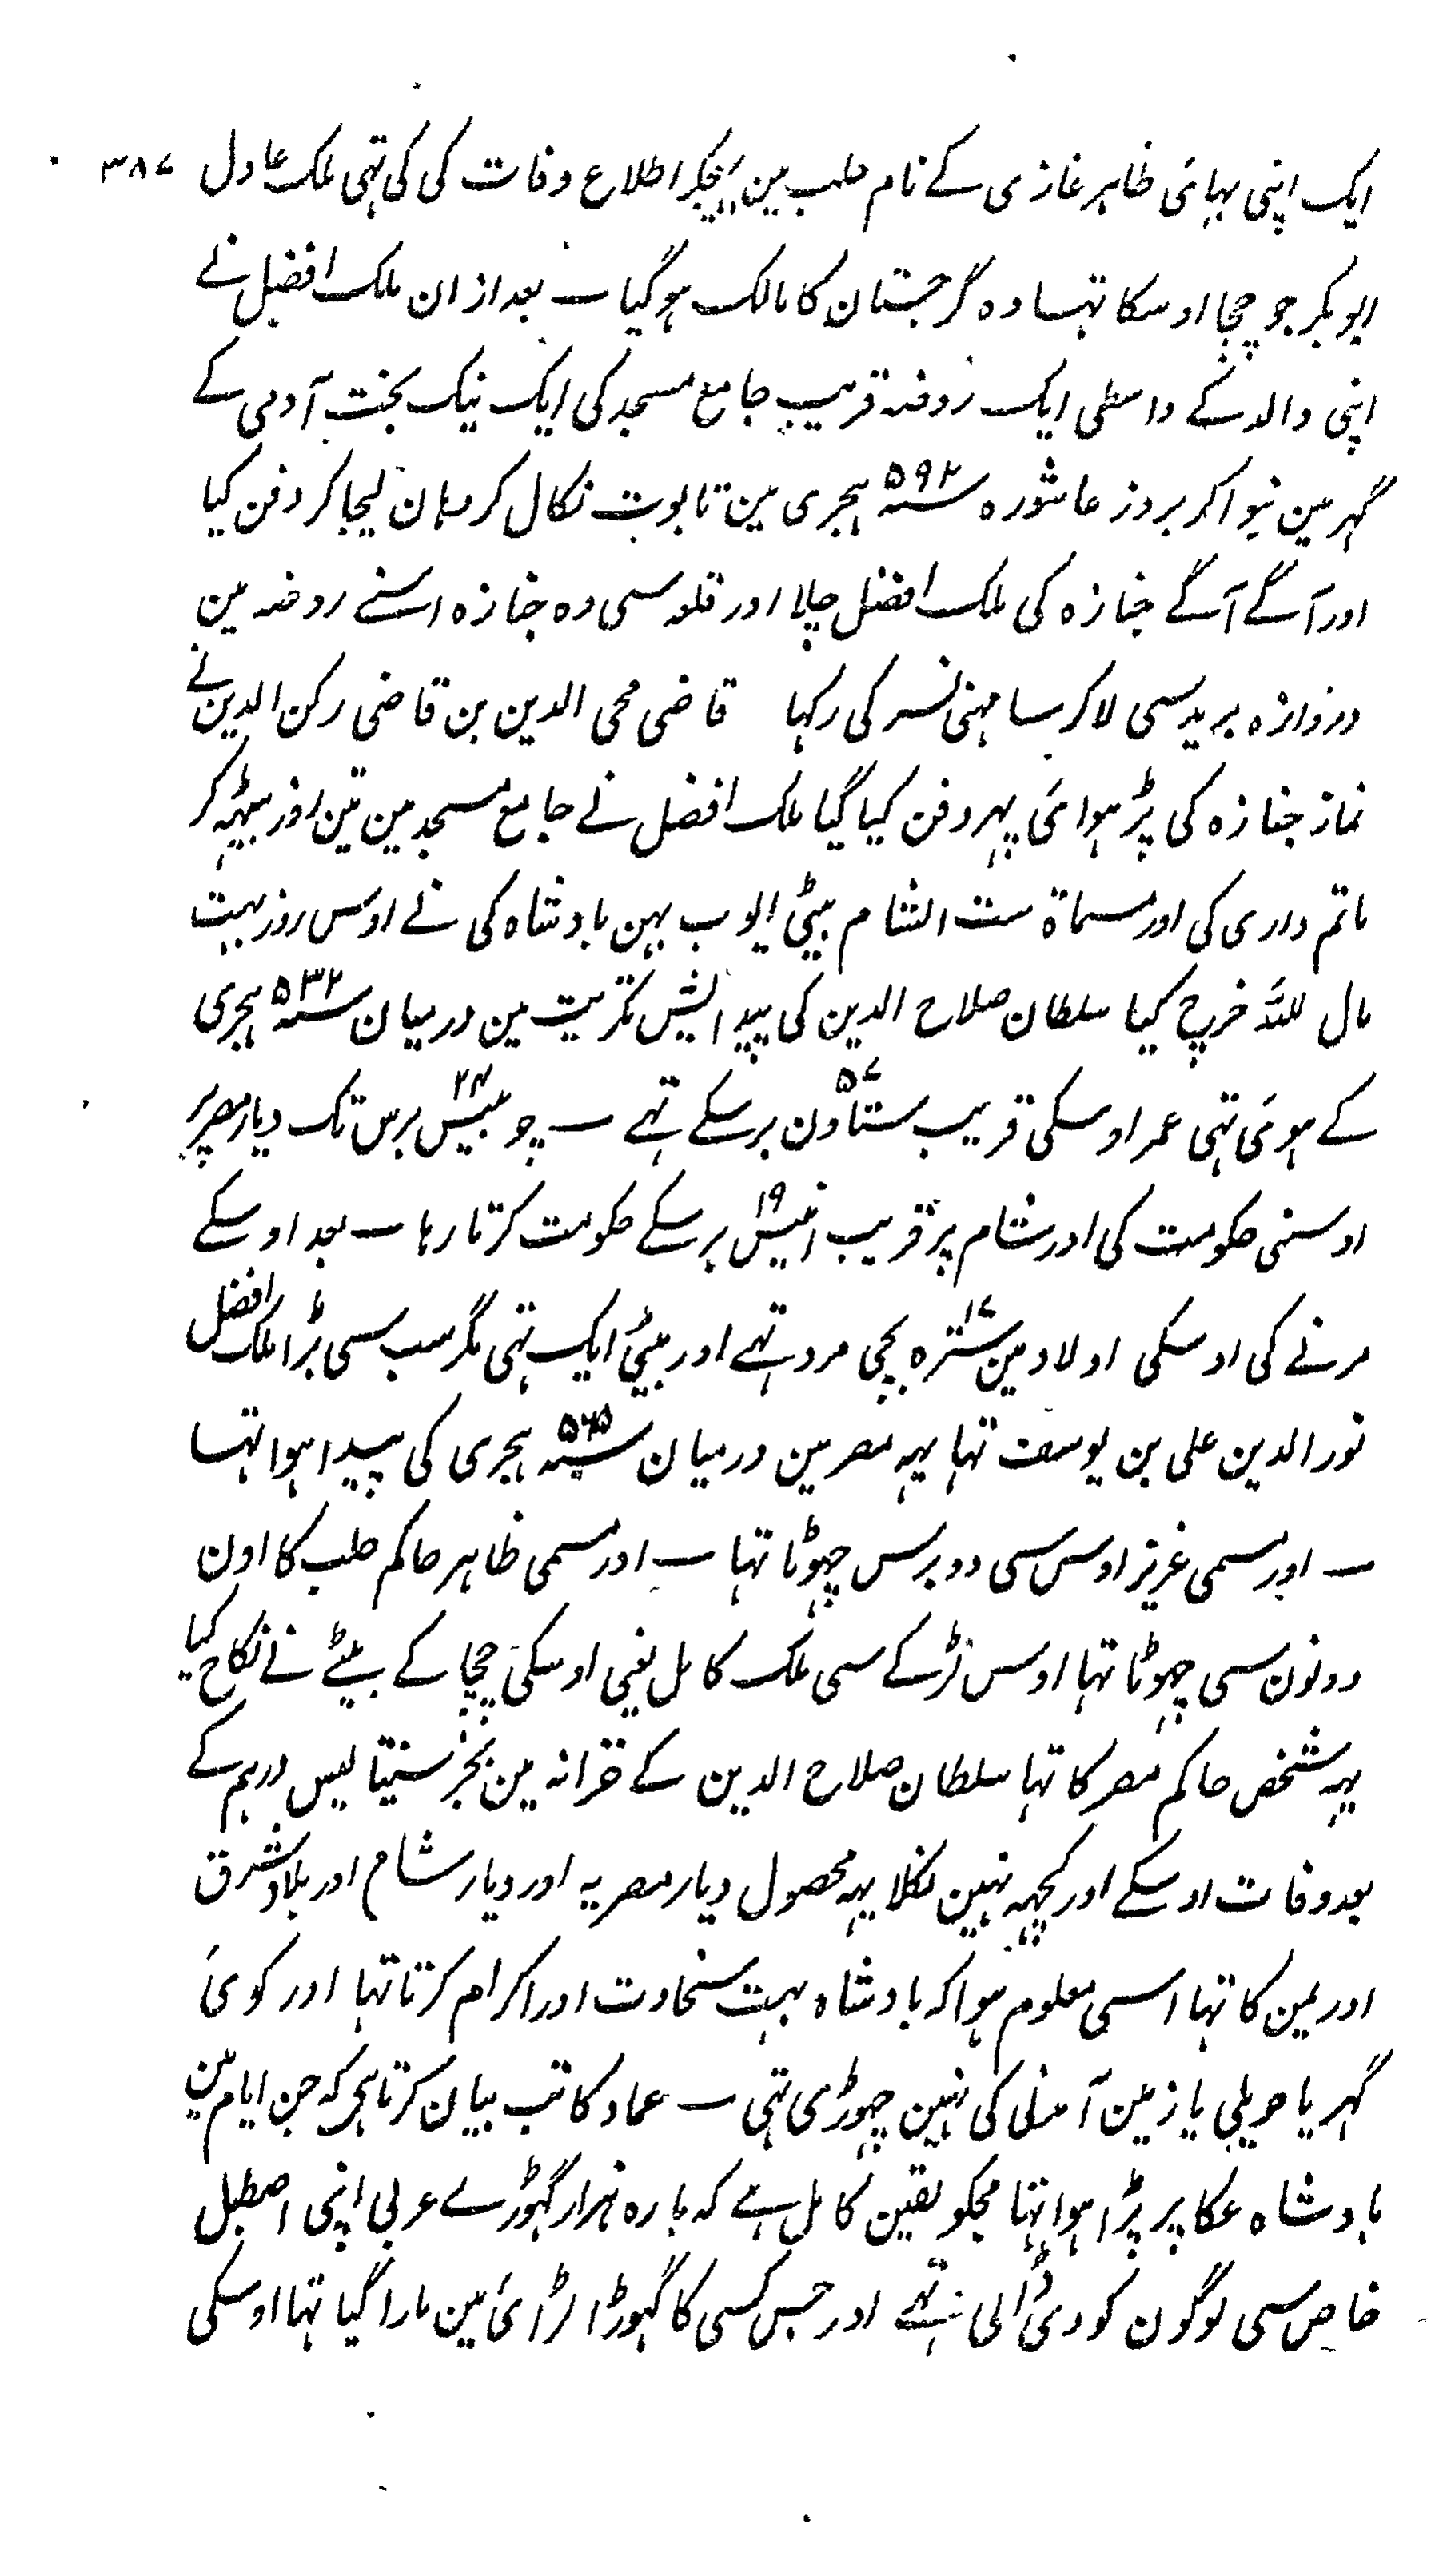 ایک اپنی بہائی ظاہر غازی کے نام حلب مین بہیجکر اطلاع وفات کی کی تہی ملک عادل ۳۸۷
ابو بکر جو چچا اوسکا تہا وہ گرجستان کا مالک ہو گیا ـ بعد ازان ملک افضل نے
اپنی والد کے واسطی ایک روضہ قریب جامع مسجد کی ایک نیک بخت آدمی کے
گہر مین بنوا کر بروز عاشورہ سنہ ۵۹۲ ہجری مین تابوت نکال کر وہان لیجا کر دفن کیا
اور آگے آگے جنازہ کی ملک افضل چلا اور قلعہ سی وہ جنازہ اسنے روضہ مین
دروازہ برید سی لا کر سامہنی نسر کی رکہا قاضی محی الدین بن قاضی رکن الدین نے
نماز جنازہ کی پڑہوائی پہر دفن کیا گیا ملک افضل نے جامع مسجد مین تین روز بیٹہہ کر
ماتم داری کی اور مسماۃ ست الشام بیٹی ایوب بہن بادشاہ کی نے اوس روز بہت
مال للہ خرچ کیا سلطان صلاح الدین کی پیدایش تکریت مین درمیان سنہ ۵۳۲ ہجری
کے ہوئی تہی عمر اوسکی قریب ستاون ۵۷ برسکے تہے ـ چوبیس ۲۴ برس تک دیار مصر پر
اوسنی حکومت کی اور شام پر قریب انیس ۱۹ برسکے حکومت کرتا رہا ـ بعد اوسکے
مرنے کی اوسکی اولاد مین سترہ ۱۷ بچی مرد تہے اور بیٹی ایک تہی مگر سب سی بڑا ملک افضل
نور الدین علی بن یوسف تہا یہہ مصر مین درمیان سنہ ۵۶۵ ہجری کی پیدا ہوا تہا
ـ اور مسمی عزیز اوس سی دو برس چہوٹا تہا ـ اور مسمی ظاہر حاکم حلب کا اون
دونون سی چہوٹا تہا اوس لڑکے سی ملک کامل یعنی اوسکی چچا کے بیٹے نے نکاح کیا
یہہ شخص حاکم مصر کا تہا سلطان صلاح الدین کے خزانہ مین بجز سینتالیس درہم کے
بعد وفات اوسکے اور کچہہ نہین نکلا یہہ محصول دیار مصریہ اور دیار شام اور بلاد شرق
اور یمن کا تہا اسی معلوم ہوا کہ بادشاہ بہت سخاوت اور اکرام کرتا تہا اور کوئی
گہر یا حویلی یا زمین آمدنی کی نہین چہوڑی تہی ـ عماد کاتب بیان کرتا ہی کہ جن ایام مین
بادشاہ عکا پر پڑا ہوا تہا مجکو یقین کامل ہے کہ بارہ ہزار گہوڑے عربی اپنی اصطبل
خاص سی لوگون کو دی ڈالی تہے اور جس کسی کا گہوڑا لڑائی مین مارا گیا تہا اوسکی